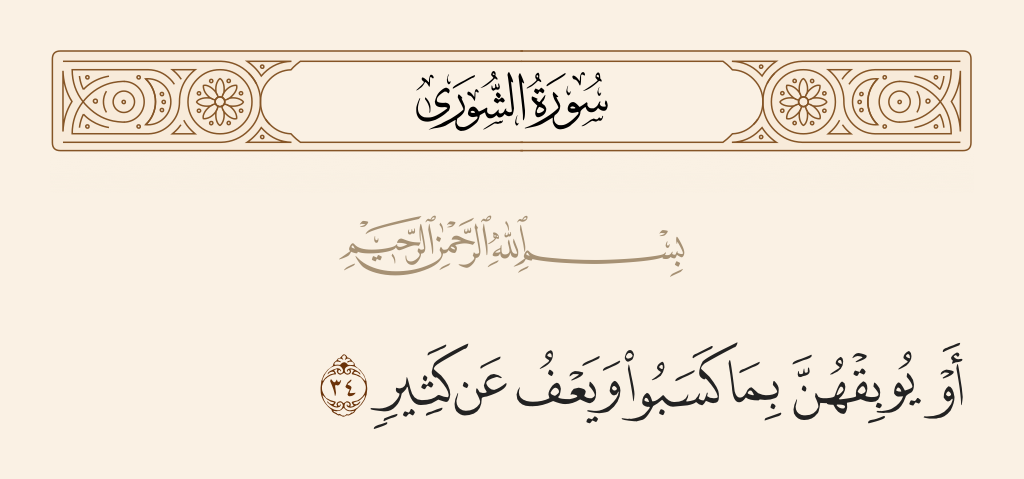 سُورَةُ الشُّورَىٰ
بِسْمِ ٱللَّهِ ٱلرَّحْمَٰنِ ٱلرَّحِيمِ
أَوْ يُوبِقْهُنَّ بِمَا كَسَبُوا۟ وَيَعْفُ عَن كَثِيرٍ ٣٤